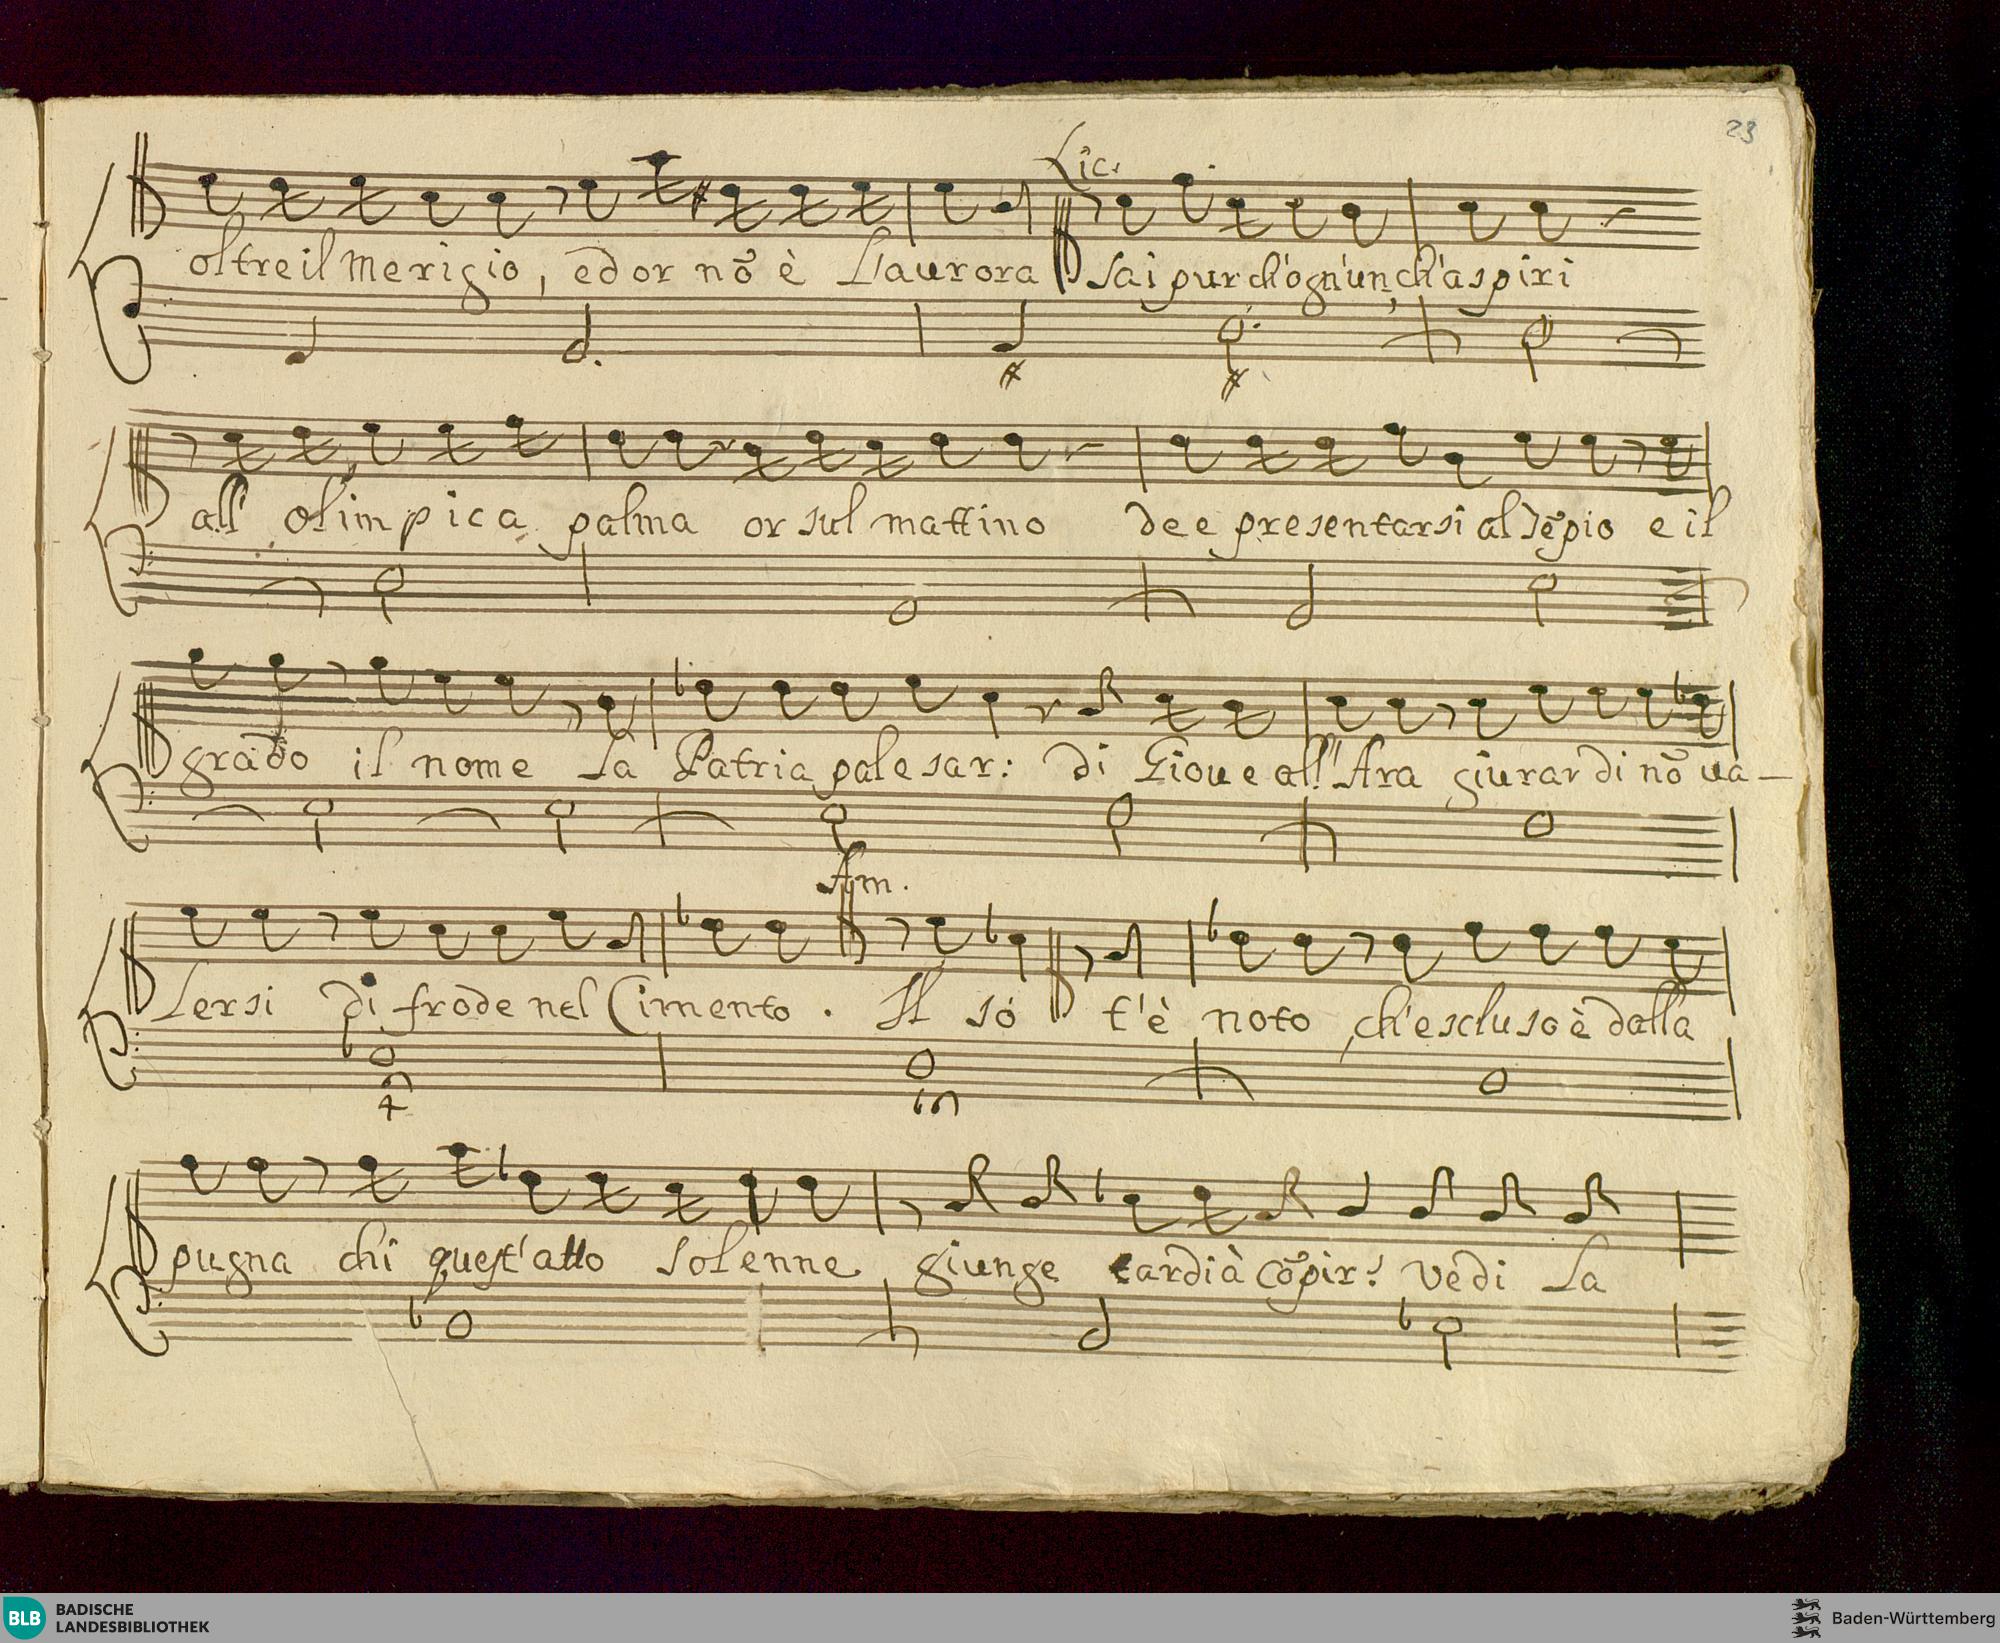 23
Lic.
oltre il merigio, ed or nõ è L'aurora sai pur ch'ogn'un, ch'aspiri
all' olimpica palma or sul mattino dee presentarsi al Tẽpio e il
grado il nome la Patria palesar: di Giove all' Ara giurar di nõ va-
Am.
lersi di frode nel Cimento. Il sò t'è noto, ch'escluso è dalla
pugna chi quest'atto solenne giunge tardi à cõpir: vedi la
BLB BADISCHE
LANDESBIBLIOTHEK
Baden-Württemberg